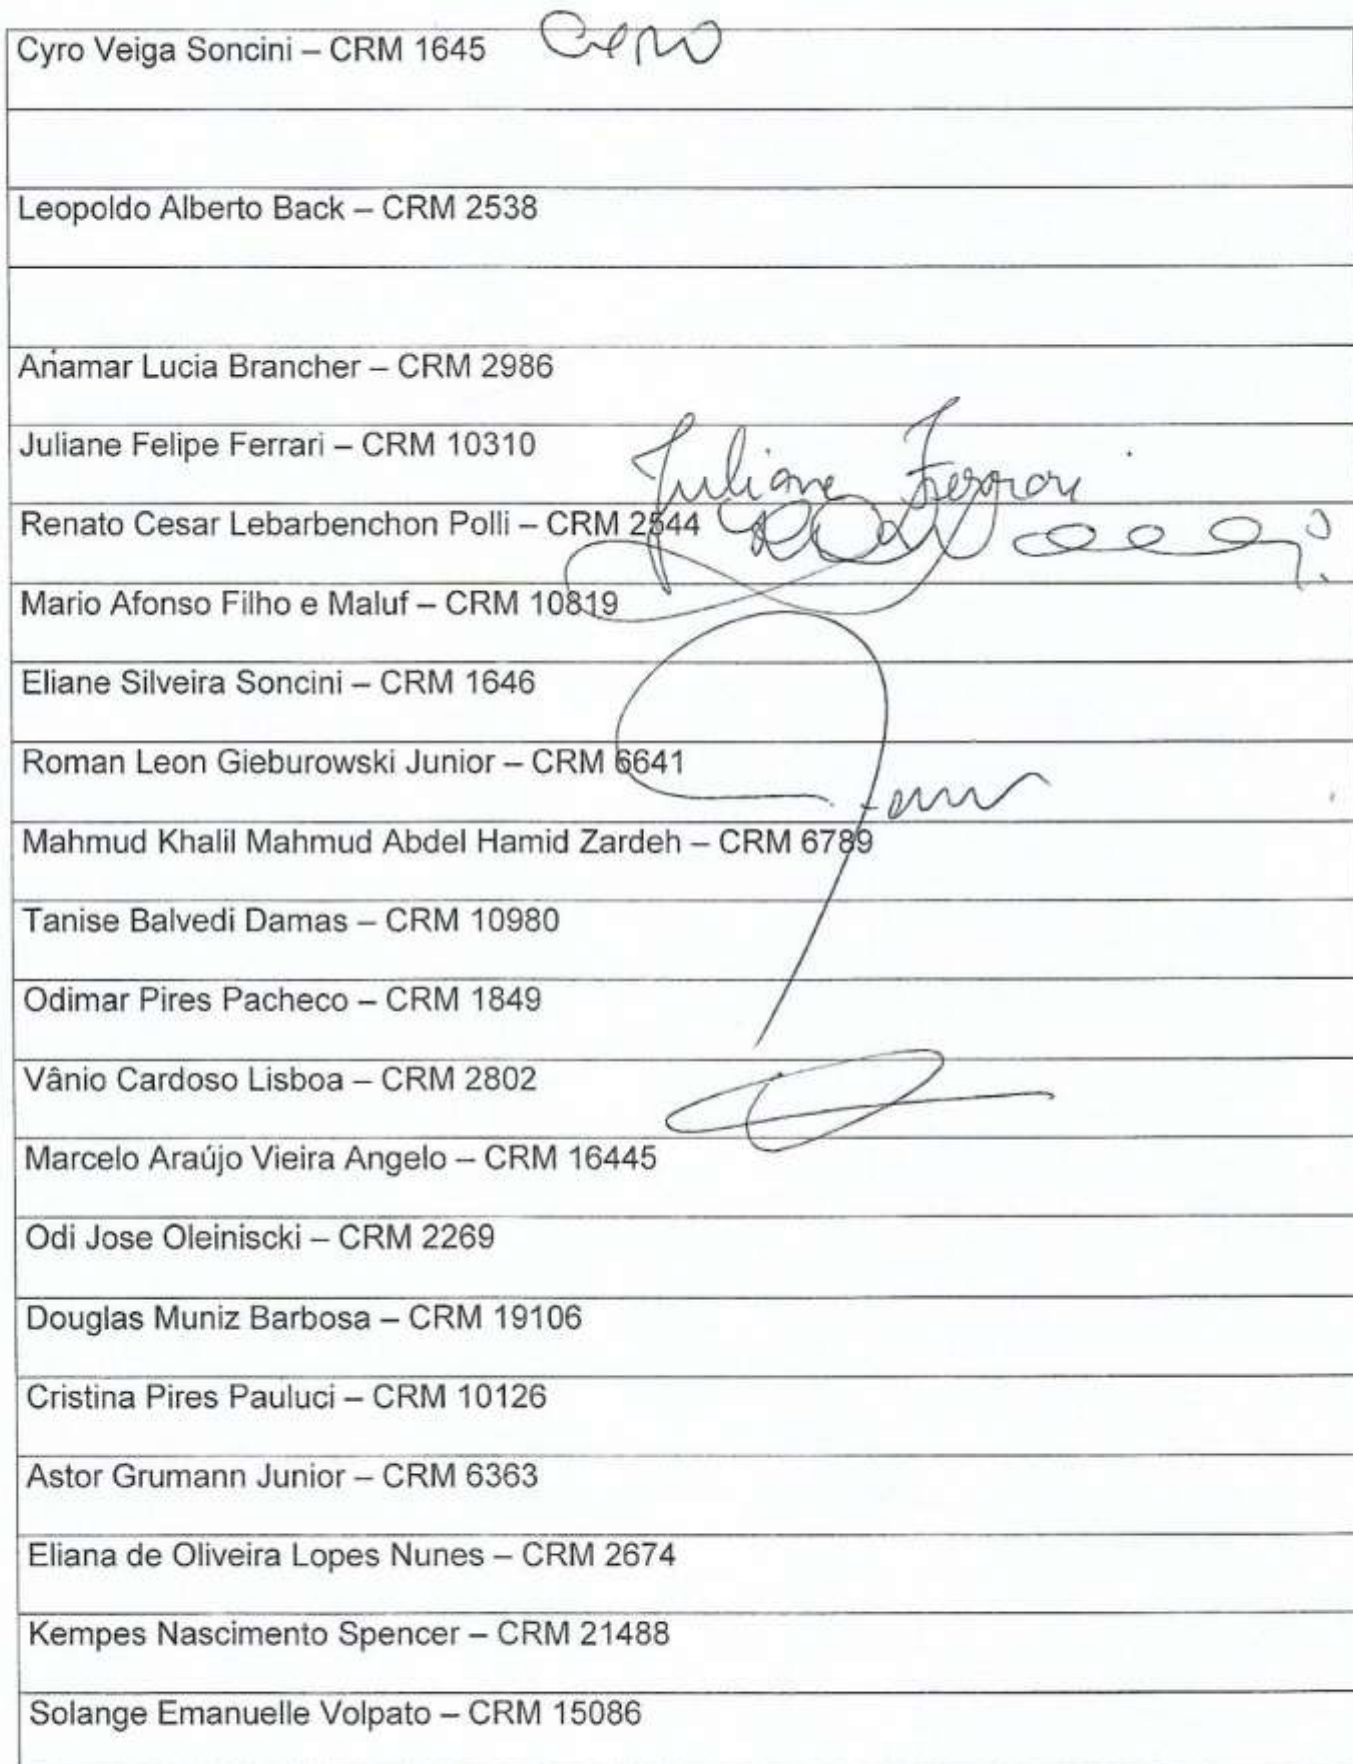 Cyro Veiga Soncini – CRM 1645
Leopoldo Alberto Back – CRM 2538
Anamar Lucia Brancher – CRM 2986
Juliane Felipe Ferrari – CRM 10310
Juliane Ferrari
Renato Cesar Lebarbenchon Polli – CRM 2544
Mario Afonso Filho e Maluf – CRM 10819
Eliane Silveira Soncini – CRM 1646
Roman Leon Gieburowski Junior – CRM 6641
Mahmud Khalil Mahmud Abdel Hamid Zardeh – CRM 6789
Tanise Balvedi Damas – CRM 10980
Odimar Pires Pacheco – CRM 1849
Vânio Cardoso Lisboa – CRM 2802
Marcelo Araújo Vieira Angelo – CRM 16445
Odi Jose Oleiniscki – CRM 2269
Douglas Muniz Barbosa – CRM 19106
Cristina Pires Pauluci – CRM 10126
Astor Grumann Junior – CRM 6363
Eliana de Oliveira Lopes Nunes – CRM 2674
Kempes Nascimento Spencer – CRM 21488
Solange Emanuelle Volpato – CRM 15086